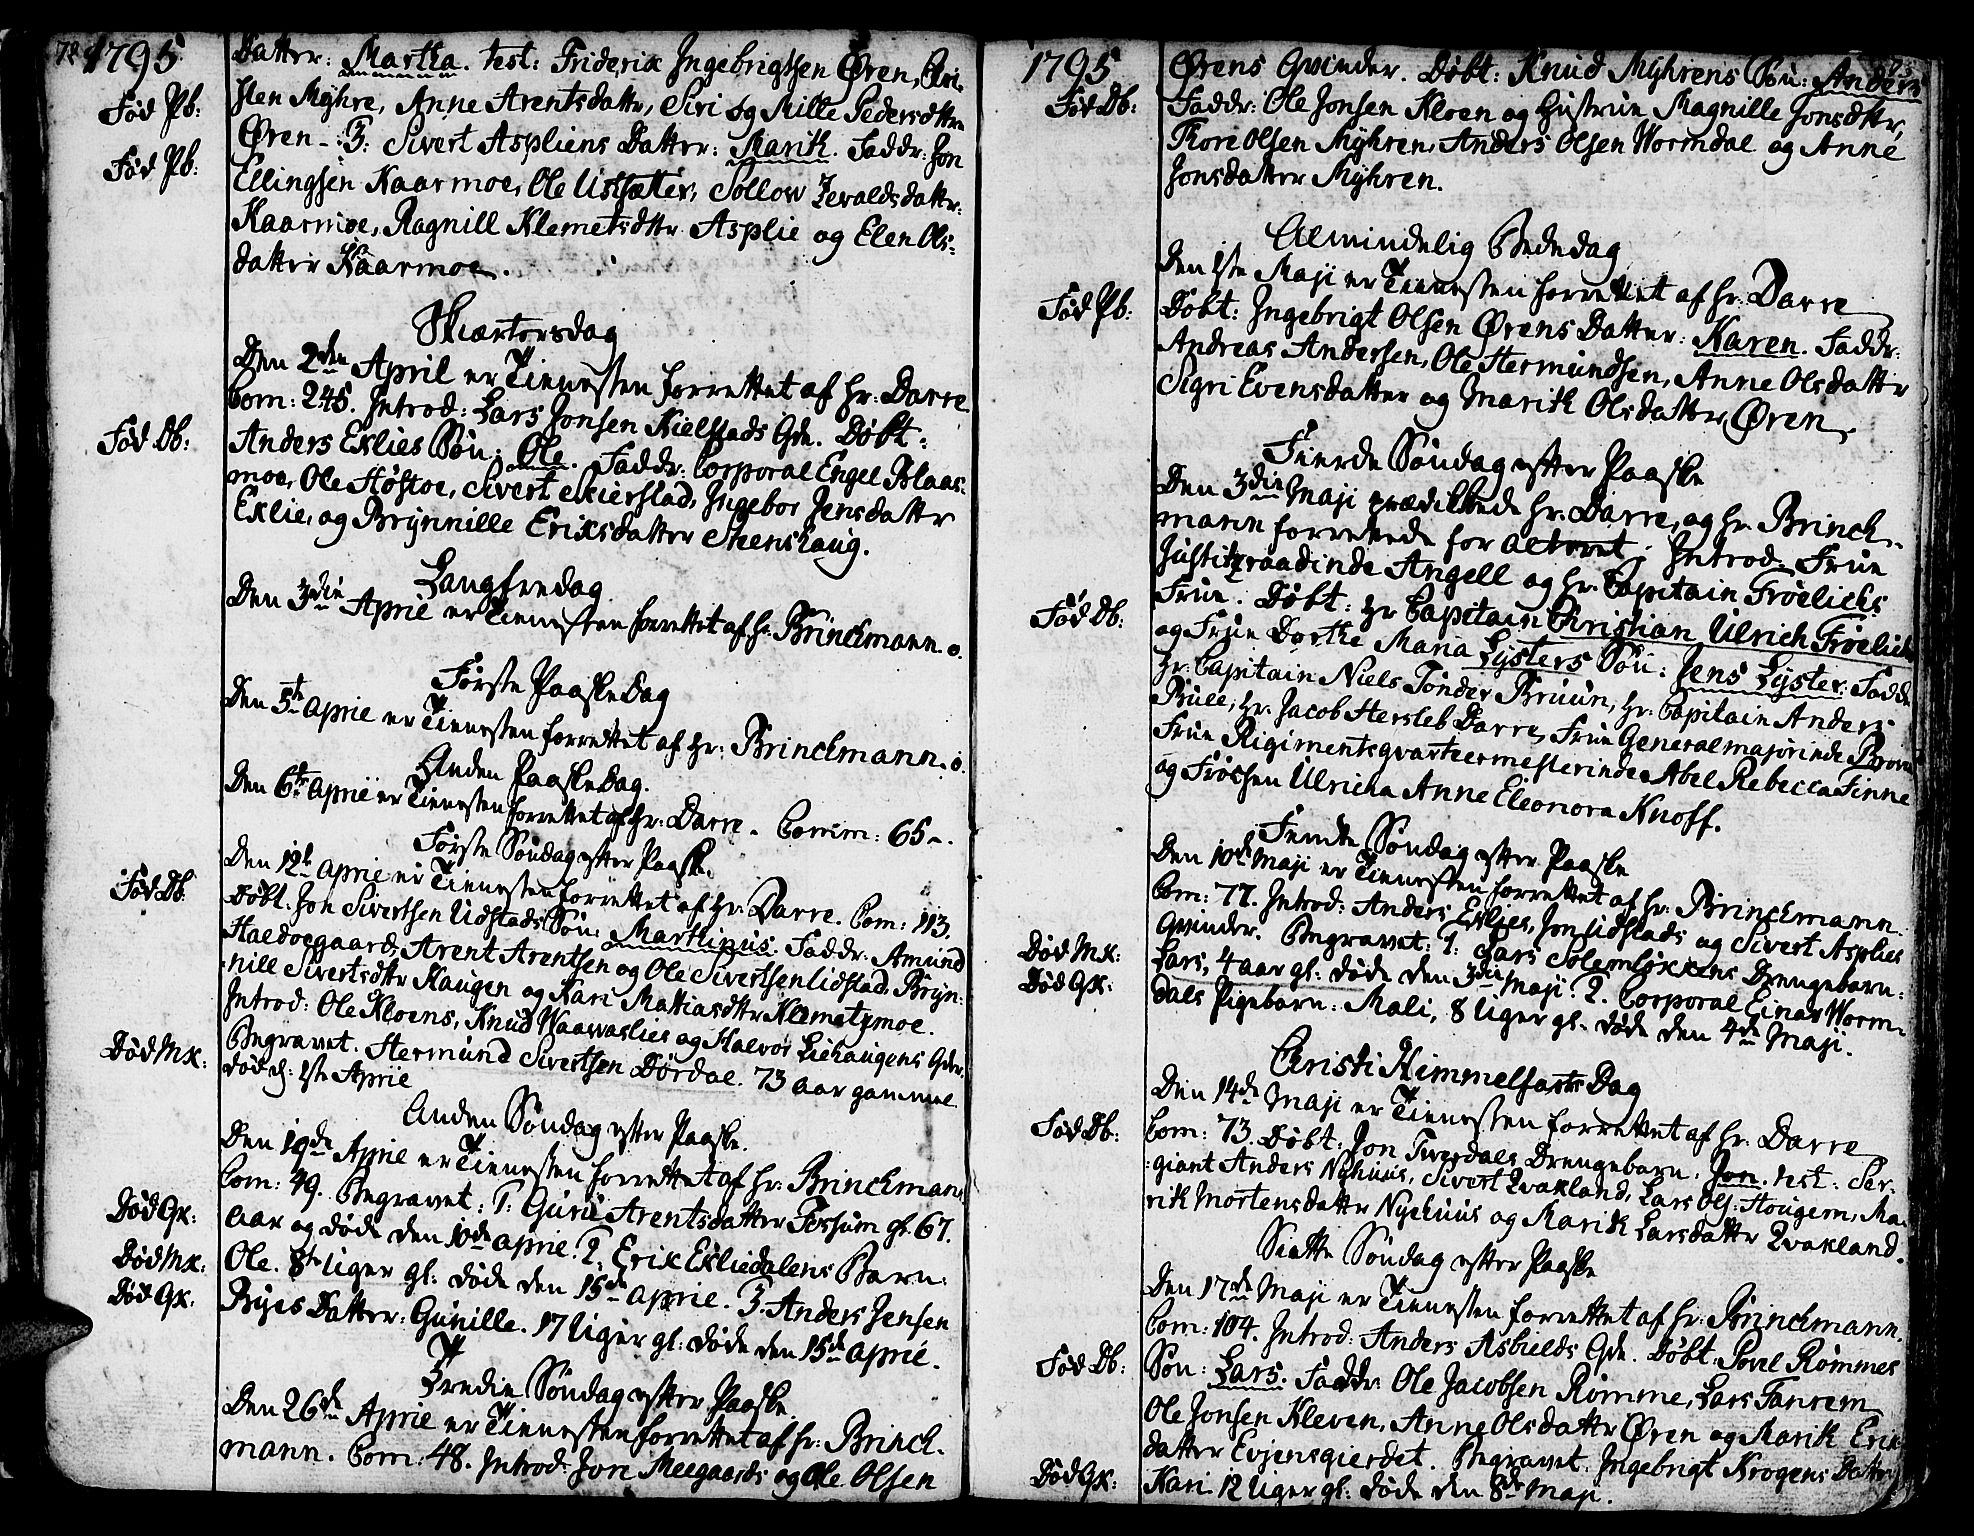 72 1795
Datter: Martha. test: Friderik Ingebrigtsen Øren, Chri-
Fød Pb:
sten Mÿhre, Anne Arentsdattr, Siri og Mille Pedersdttr
Øren - 3: Sivert Aspliens Datter: Marith. Faddr: Jon
Fød Pb:
Ellingsen Kaarmoe, Ole Udsætter, Sollow Zevaldsdattr:
Kaarmoe, Ragnill Klemetsdttr Asplie og Elen Ols-
datter Kaarmoe.
Skiærtorsdag
Den 2den April er Tienesten forrettet af hr: Darre
Com: 245. Introd: Lars Jonsen Kielstads Qde. Døbt:
Fød Db:
Anders Eklies Søn: Ole. Faddr: Corporal Engel Blaas-
moe, Ole Høstoe, Sivert Skierstad, Ingebor Jensdattr
Eklie, og Brÿnnille Eriksdatter Steenshaug.
Langfredag
Den 3die April er Tienesten forrettet af hr: Brinchmann. o.
Første Paaske Dag
Den 5te April er Tienesten forrettet af Hr: Brinchmann. o.
Anden Paaske Dag.
Den 6te April er Tienesten forrettet af hr: Darre. Comm: 65 -.
Første Søndag efter Paaske.
Den 12te April er Tienesten forrettet af Hr: Darre. Com: 113.
Fød Db
Døbt. Jon Sivertsen Lidstads Søn: Marthinus. Faddr: Amund
Haldoegaard, Arent Arentsen og Ole Sivertsen Lidstad, Brÿn-
nille Sivertsdttr Haugen og Kari Mathiasdttr Klemetsmoe.
Introd: Ole Kloens, Knud Waawaslies og Halvor Liehaugens Qdr.
Død Mk:
Begravet. Hermund Sivertsen Dørdal. 73 aar gammel
død d: 1ste April
Anden Søndag efter Paaske.
Den 19de April er Tienesten forrettet af hr: Brinchmann
Com: 49. Begravet: 1: Guru Arentsdatter Fossum gl: 67.
Død Qk:
aar og døde den 10de april. 2: Erik Ekliedalens Barn:
Død Mk:
Ole. 8te uger gl: døde den 15de april. 3. Anders Jensen
Død Qk:
Byes Datter: Gunille. 17 uger gl: døde den 15de april.
Tredie Søndag efter Paaske
Den 26de April er Tienesten forrettet af hr: Brinch-
mann. Com: 48. Introd: Jon Meegaards og Ole Olsen
1795
Ørens Qvinder. Døbt: Knud Mÿhrens Søn: Anders
Fød Db:
Faddr: Ole Jonsen Kloen og Hustrue Magnille Jonsdttr,
Thore Olsen Mÿhren, Anders Olsen Wormdal og Anne
Jonsdatter Mÿhren.
Almindelig Bededag
Den 1ste Maji er Tienesten forrettet af hr: Darre
Fød Pb:
Døbt: Ingebrigt Olsen Ørens Datter: Karen. Faddr:
Andreas Andersen, Ole Hermundsen, Anne Olsdattr
Sigri Evensdatter og Marith Olsdatter Øren.
Fierde Søndag efter Paaske
Den 3die Maji prædikede hr: Darre, og hr: Brinch-
mann forrettede for alteret; Introd: Frue
Justitzraadinde Angell og hr: Capitain Frøelichs
Frue. Døbt: Hr Capitain Christian Ulrich Frøelich
Fød Db:
og Frue Dorthe Maria Lysters Søn: Jens Lyster. Faddr
Hr: Capitain Niels Tønder Bruun, Hr: Capitain Anders
Bull, Hr: Jacob Hersleb Darre, Frue Generalmajorinde
Frue Rigimentsqvarteermesterinde Abel Rebecca Finne
og Frøchen Ulricha Anne Eleonora Knoff.
Femte Søndag efter Paaske
Den 10de Maji er Tienesten forrettet af hr: Brinchmann.
Com: 77. Introd: Anders Eklies, Jon Lidstads og Sivert Asplies
Qvinder. Begravet: 1: Lars Solemsløkkens Drengebarn:
Død Mk:
Lars, 4 aar gl: døde den 3die Maji. 2. Corporal Einar Worm-
Død Qk:
dals Pigebarn: Mali, 8 uger gl: døde den 4de Maji.
Christi Himmelfarts Dag
Den 14de Maji er Tienesten forrettet af hr: Darre
Fød Db:
Com: 73. Døbt: Jon Tverdals Drengebarn: Jon. test: Ser-
giant Anders Nÿhuus, Sivert Qvakland, Lars Ols: Hougem, Ma-
rith Mortensdatter Nÿehuus og Marith Larsdatter Qvakland.
Siette Søndag efter Paaske
Den 17de Maji er Tienesten forrettet af hr: Brinchmann.
Com: 104. Introd: Anders Asbiølds Qde. Døbt: Povel Rømmes
Fød Db:
Søn: Lars. Faddr: Ole Jacobsen Rømme, Lars Tanrem
Ole Jonsen Kleven, Anne Olsdattr Øren og Marith Erik-
datter Evjensgierdet. Begravet. Ingebrigt Krogens Dattr
Død Qk:
Kari. 12 uger gl: døde den 8de Maji.